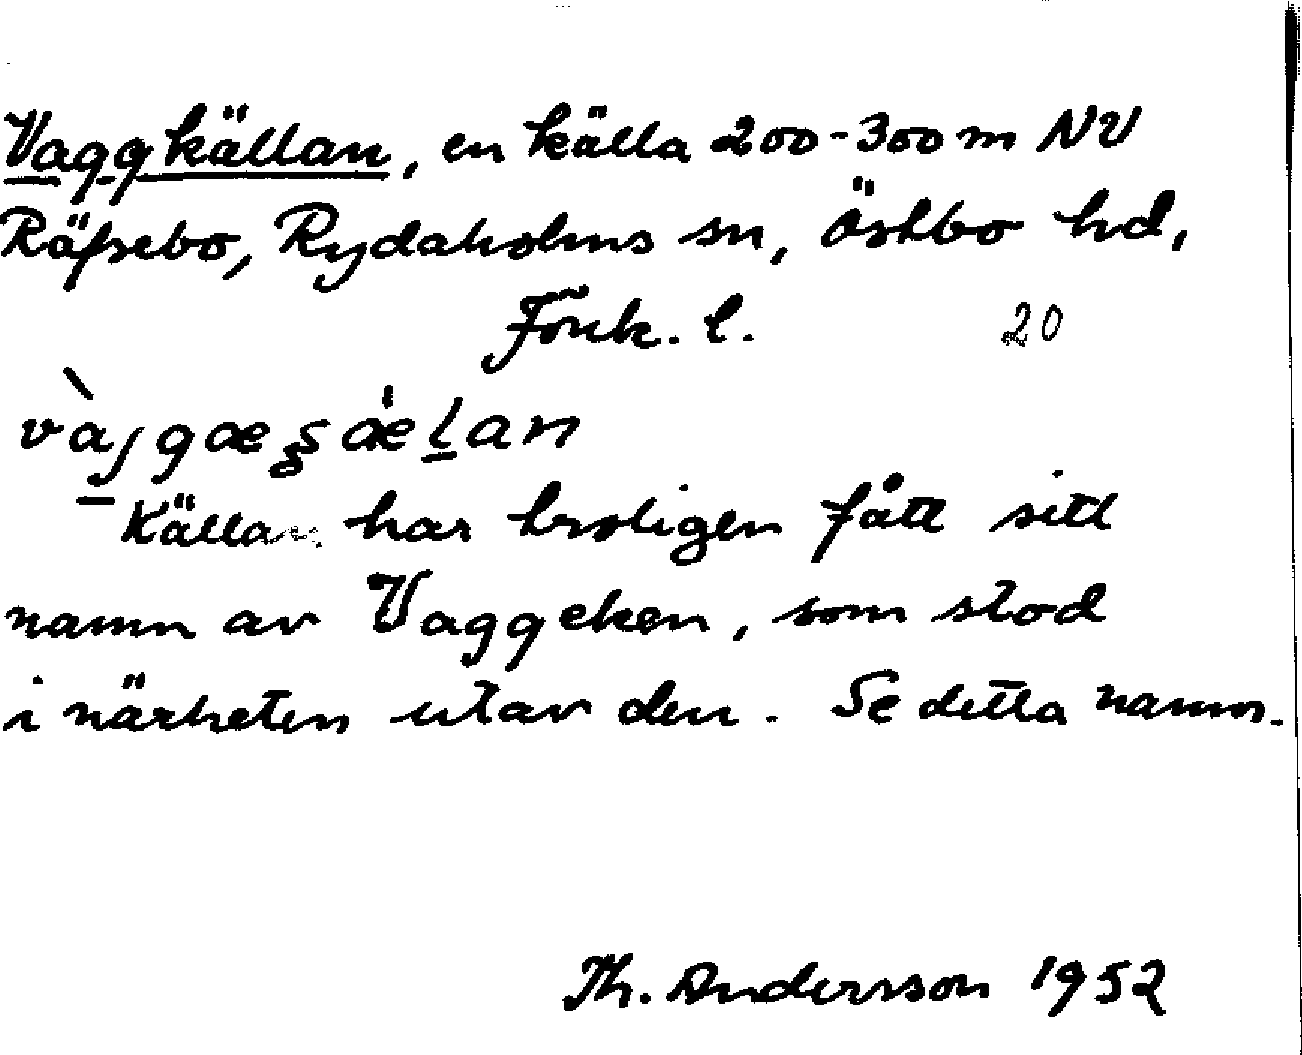 Vaggkällan, en källa 200-300 m NV
Räfsebo, Rydaholms sn, Östbo hd,
Jönk. l. 20
Källan har troligen fått sitt
namn av Vaggeken, som stod
i närheten utav den. Se detta namn.
Th. Andersson 1952